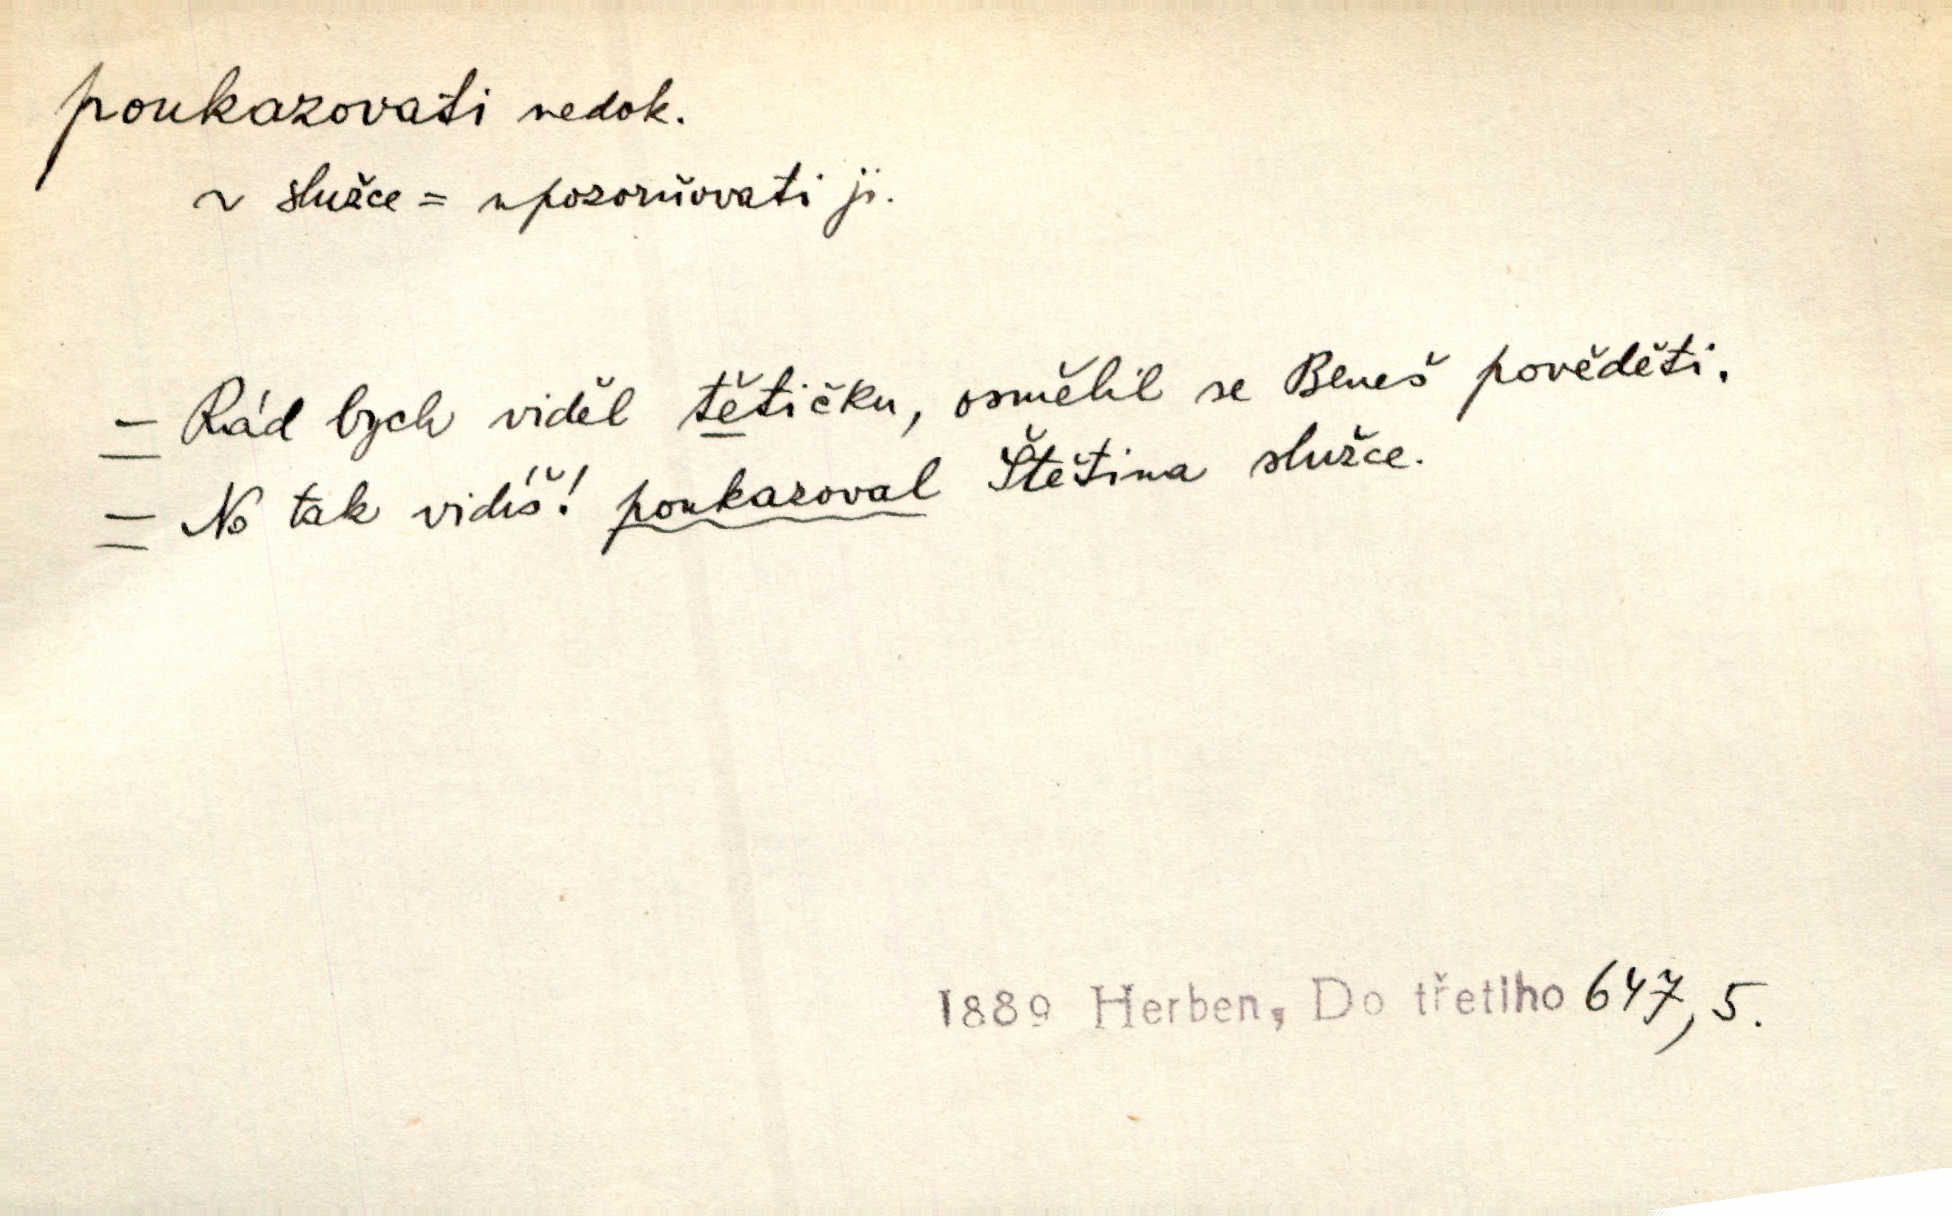 poukazovati nedok.
~ služce = upozorňovati ji.
– Rád bych viděl tětičku, osmělil se Beneš pověděti.
– No tak vidíš! poukazoval Štětina služce.
1889 Herben, Do třetího 647, 5.